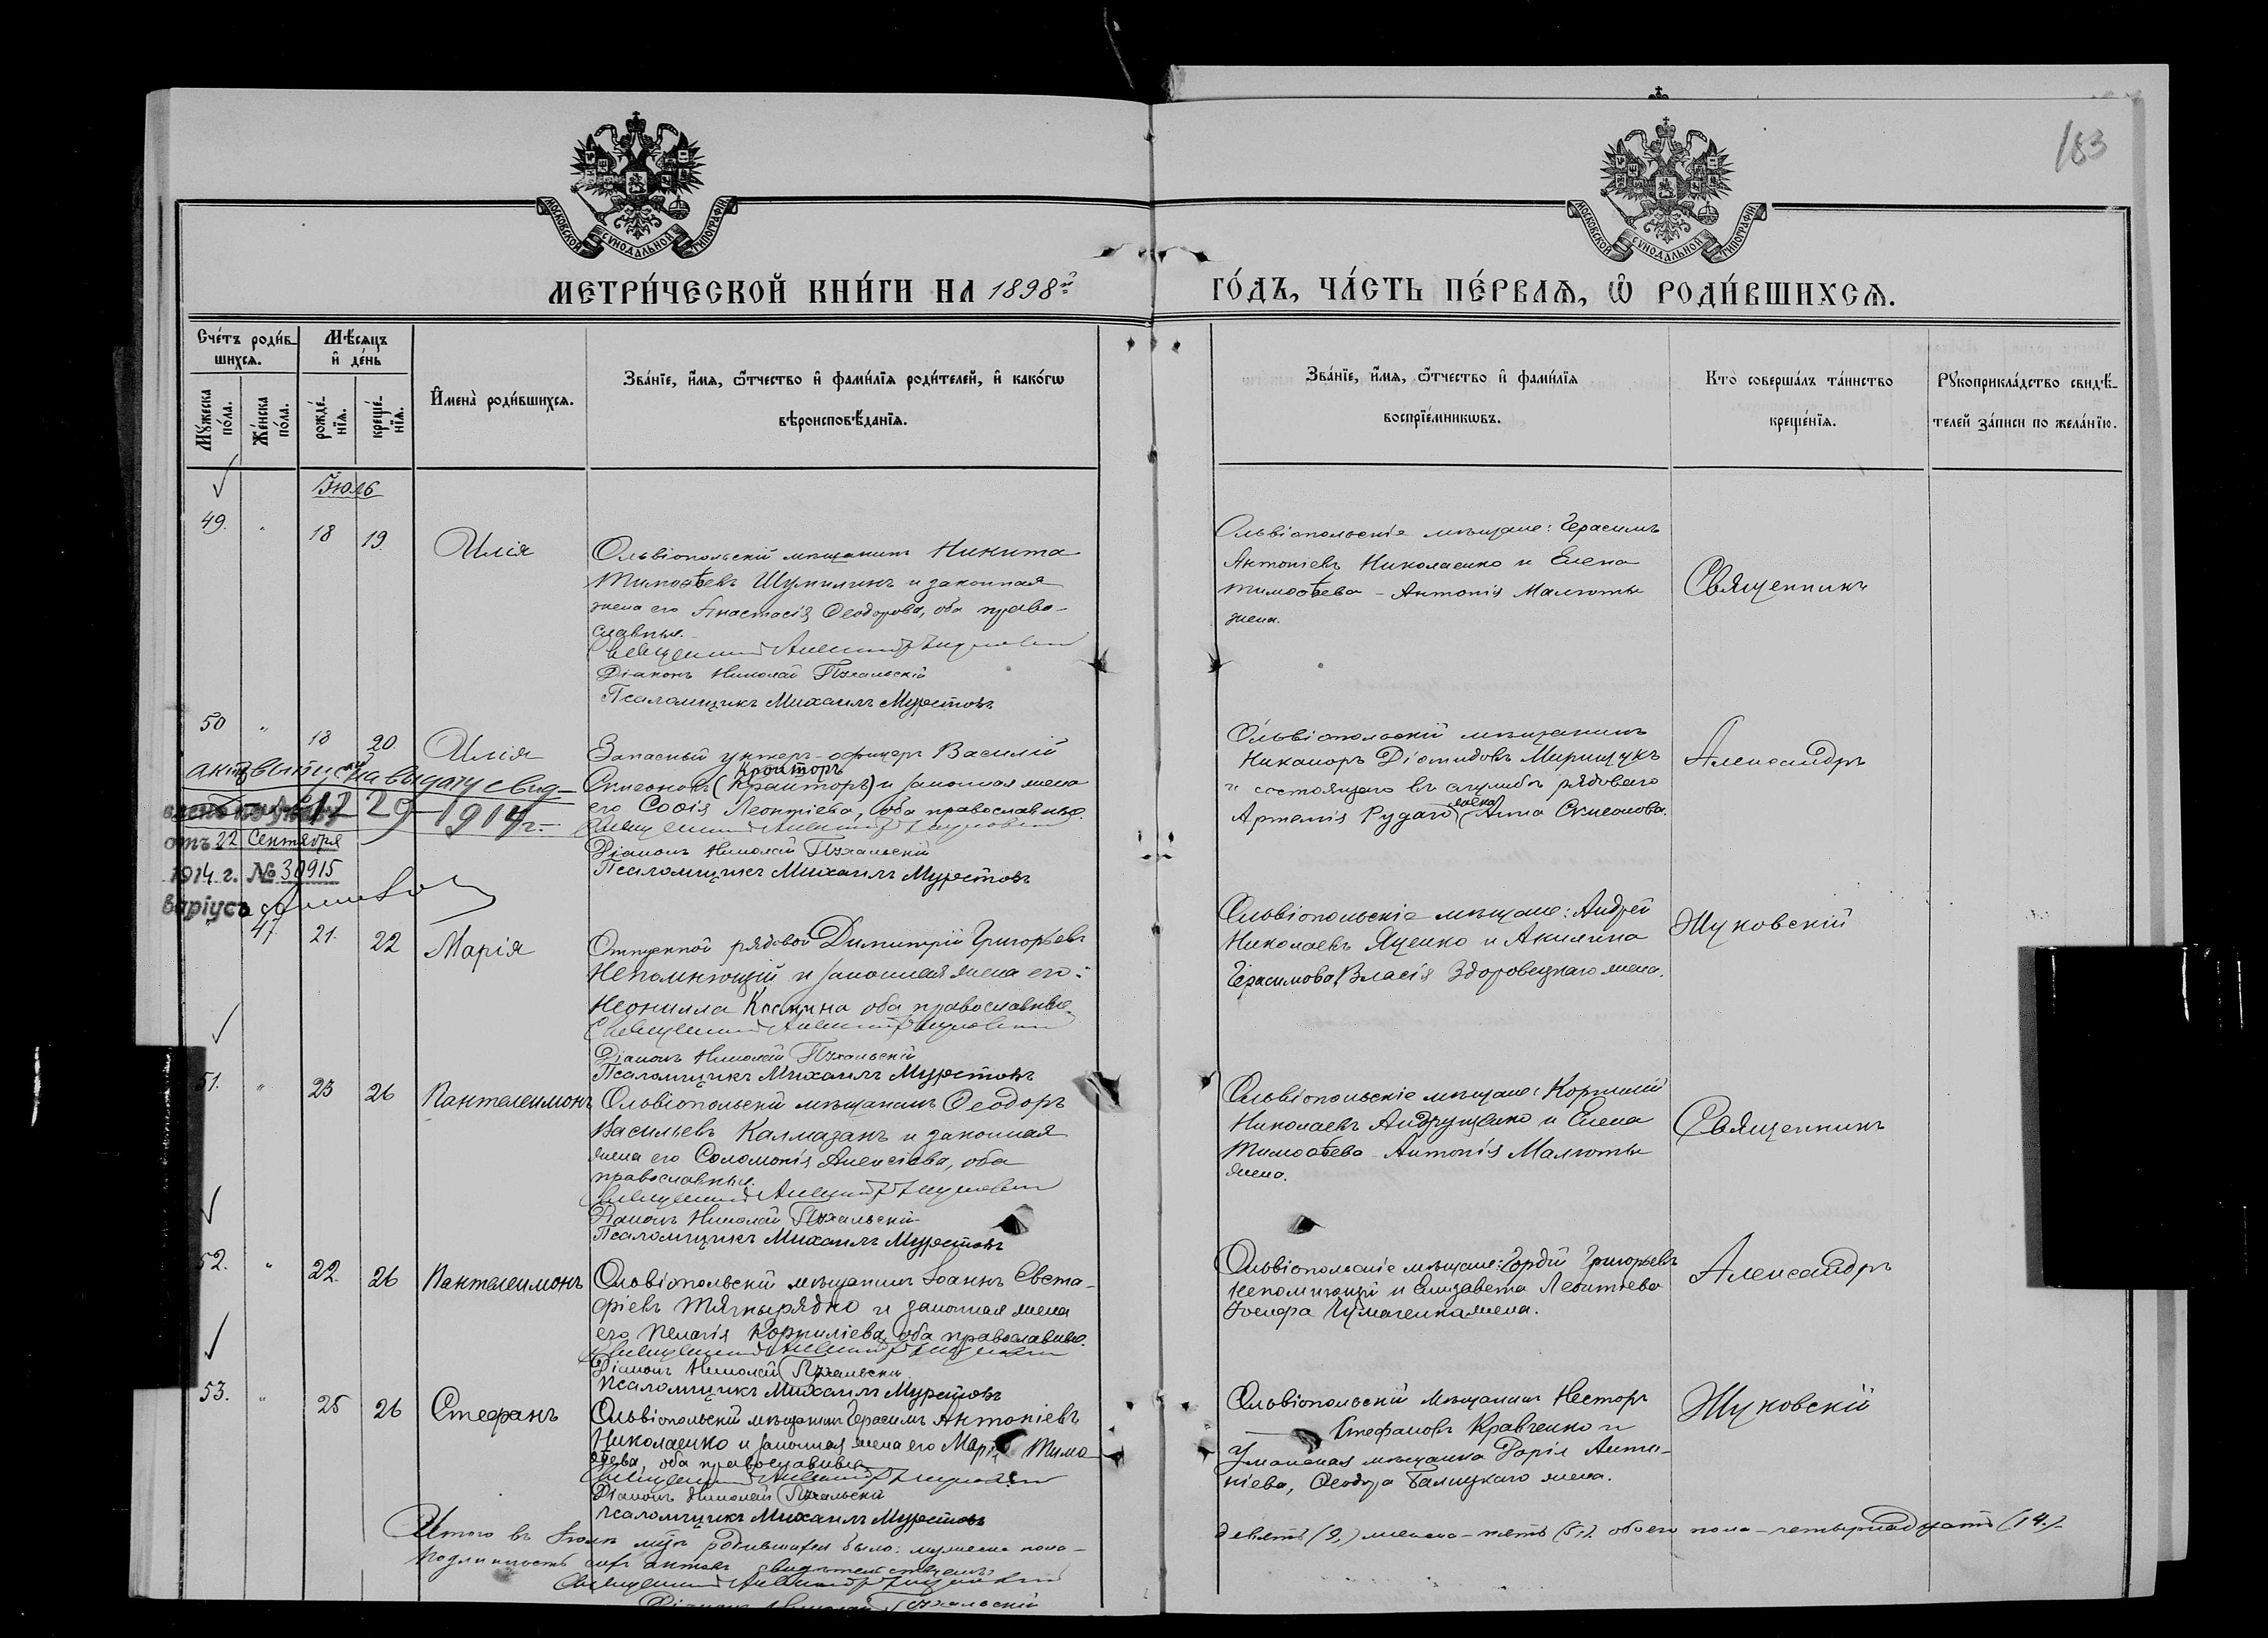 183
МОСКОВСКОЙ СУНОДАЛЬНОЙ ТИПОГРАФІИ
МОСКОВСКОЙ СУНОДАЛЬНОЙ ТИПОГРАФІИ
МЕТРИ́ЧЕСКОЙ КНИ́ГИ НА 1898й
ГО́ДЪ, ЧА́СТЬ ПЕ́РВАѦ, Ѡ РОДИ́ВШИХСѦ.
Сче́тъ роди́в-
шихсѧ.
Мѣ́сѧцъ
и҆ де́нь
Мꙋ́жеска
по́ла.
Же́нска
по́ла.
рожде́-
нїѧ.
креще́-
нїѧ.
И҆мена̀ роди́вшихсѧ.
Зва́нїе, и҆́мѧ, ѻ҆́тчество и҆ фами́лїѧ роди́телей, и҆ како́гѡ
вѣроисповѣ́данїѧ.
Зва́нїе, и҆́мѧ, ѻ҆́тчество и҆ фами́лїѧ
воспрїе́мникѡвъ.
Кто̀ соверша́лъ та́инство
креще́нїѧ.
Рꙋкоприкла́дство свидѣ́-
телей за́писи по жела́нїю.
Іюль
49. " 18 19 Илія
Ольвіопольскій мѣщанинъ Никита
Тимоѳеевъ Шумилинъ и законная
жена его Анастасія Ѳеодорова, оба право-
славные.
Священникъ Александръ Жуковскій
Діаконъ Николай Пухальскій
Псаломщикъ Михаилъ Муретовъ
Ольвіопольскіе мѣщане: Герасимъ
Антоніевъ Николаенко и Елена
Тимоѳеева - Антонія Малюты
жена.
Священникъ
50 " 18 20 Илія
Запасный унтеръ-офицеръ Василій
Кроиторъ
Симеоновъ (Краиторъ) и законная жена
его Софія Леонтіева, оба православные.
Священникъ Александръ Жуковскій
Діаконъ Николай Пухальскій
Псаломщикъ Михаилъ Муретовъ
на выдачу свид-
1914 г.
отъ 22 Сентября
1914 г. № 30915
варіусъ
Ольвіопольскій мѣщанинъ
Никаноръ Діомидовъ Мирищукъ
и состоящаго въ службѣ рядоваго
жена
Артемія Рудаго Анна Симеонова.
Александръ
" 47. 21. 22 Марія
Отпускной рядовой Димитрій Григорьевъ
Непомнющій и законная жена его:
Неонилла оба православные.
Священникъ Александръ Жуковскій
Діаконъ Николай Пухальскій
Псаломщикъ Михаилъ Муретовъ
Ольвіопольскіе мѣщане: Андрей
Николаевъ Яценко и Акилина
Герасимова, Власія Здоровецкаго жена.
Жуковскій
51. " 23 26 Пантелеимонъ
Ольвіопольскій мѣщанинъ Ѳеодоръ
Васильевъ Калмазанъ и законная
жена его Соломонія Алексіева, оба
православные.
Священникъ Александръ Жуковскій
Діаконъ Николай Пухальскій
Псаломщикъ Михаилъ Муретовъ
Ольвіопольскіе мѣщане: Корнилій
Николаевъ Андрущенко и Елена
Тимоѳеева - Антонія Малюты
жена.
Священникъ
52. " 22. 26 Пантелеимонъ
Ольвіопольскій мѣщанинъ Іоаннъ Евста-
фіевъ Тягнырядно и законная жена
его Пелагія Корниліева, оба православные.
Священникъ Александръ Жуковскій
Діаконъ Николай Пухальскій
Псаломщикъ Михаилъ Муретовъ
Ольвіопольскіе мѣщане: Гордій Григорьевъ
Непомнющій и Елизавета Леонтіева
Іосифа Чумаченка жена.
Александръ
53. " 25 26 Стефанъ
Ольвіопольскій мѣщанинъ Герасимъ Антоніевъ
Николаенко и законная жена его Марія Тимо-
ѳеева, оба православные.
Священникъ Александръ Жуковскій
Діаконъ Николай Пухальскій
Псаломщикъ Михаилъ Муретовъ
Ольвіопольскій мѣщанинъ Несторъ
Стефановъ Кравченко и
Уманская мѣщанка Дарія Анто-
ніева, Ѳеодора Галицкаго жена.
Жуковскій
Итого въ Іюлѣ м-цѣ родившихся было: мужеска пола -
девять (9,) женска - пять (5,) обоего пола - четырнадцать (14.)
Подлинность сихъ актовъ свидѣтельствуемъ:
Священникъ Александръ Жуковскій
Діаконъ Николай Пухальскій